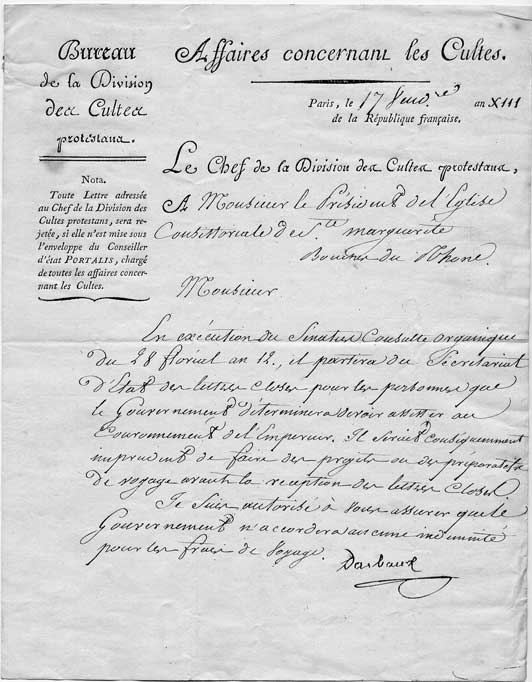 Bureau
de la Division
des Cultes
protestans.
Nota.
Toute Lettre adressée
au Chef de la Division des
Cultes protestans, sera re-
jetée, si elle n'est mise sous
l'enveloppe du Conseiller
d'état PORTALIS, chargé
de toutes les affaires concer-
nant les Cultes.
Affaires concernant les Cultes.
Paris, le 17 Vend.re an XIII
de la République française.
Le Chef de la Division des Cultes protestans,
A Monsieur le Président de l'Eglise
Consistoriale de Ste marguerite
Bouches du Rhone.
Monsieur
En exécution du Senatus Consulte organique
du 28 floreal an 12, il partira du Sécretariat
d'Etat des lettres closes pour les personnes que
le Gouvernement déterminera devoir assister au
Couronnement de l'Empereur. Il seroit conséquemment
imprudent de faire des projets ou des préparatifs
de voyage avant la reception des lettres closes.
Je suis autorisé à vous assurer que le
Gouvernement n'accordera aucune indemnité
pour les frais de Voyage.
Darbaud